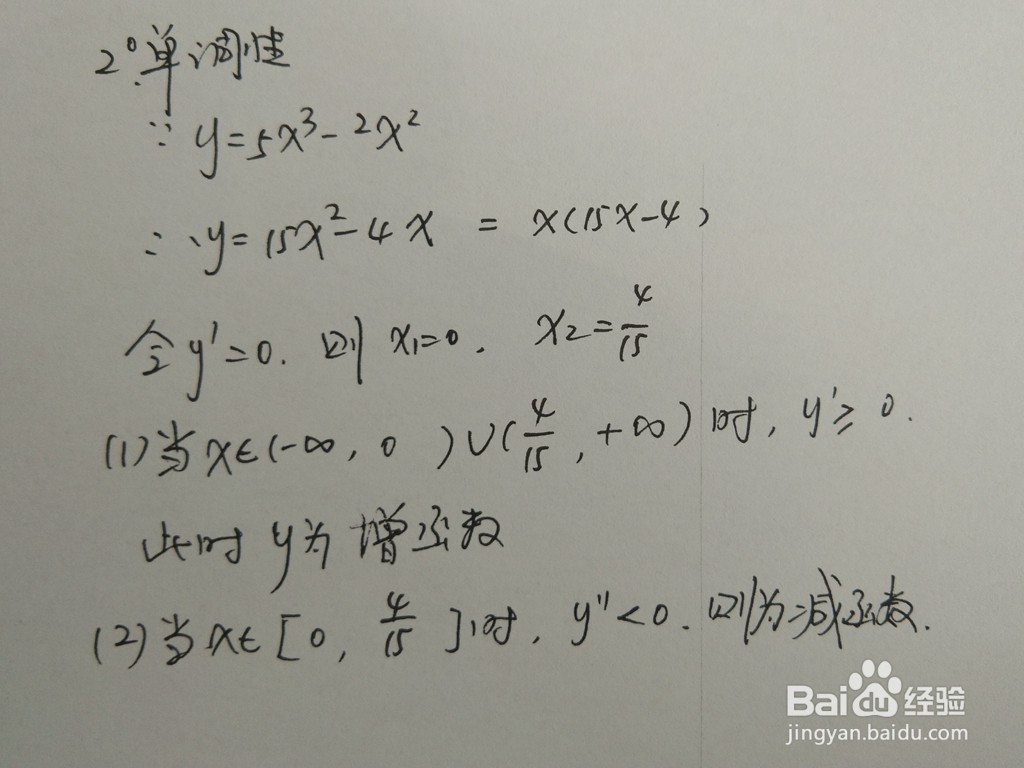 2°.单调性
∵ y=5x³-2x²
∴ y=15x²-4x = x(15x-4)
令y'=0. 则 x₁=0. x₂=4/15
(1)当x∈(-∞, 0 )∪(4/15, +∞)时, y'≥0.
此时 y为 增函数
(2)当x∈[0, 4/15]时, y''<0. 则为减函数.
Bai du 经验
jingyan.baidu.com